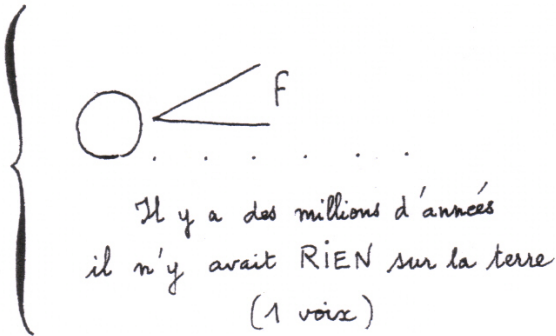 F
Il y a des millions d'années
il n'y avait RIEN sur la terre
(1 voix)